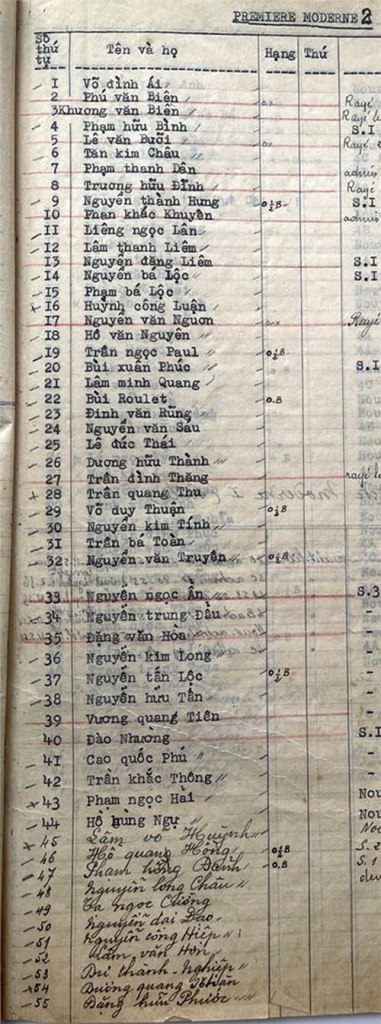 PREMIERE MODERNE 2
Số thứ tự Tên và họ Hạng Thú
1 Võ đình Ái
2 Phú văn Biên Rayé
3 Khương văn Biên Rayé
4 Phạm hữu Bình S.I
5 Lê văn Bưởi Rayé
6 Tăn kim Châu
7 Phạm thanh Dân admis
8 Trương hữu Đính Rayé
9 Nguyễn thành Hưng O½B S.I
10 Phan khắc Khuyến admis
11 Liêng ngọc Lân
12 Lâm thanh Liêm
13 Nguyễn đăng Liêm S.I
14 Nguyễn bá Lộc S.I
15 Phạm bá Lộc
16 Huỳnh công Luận
17 Nguyễn văn Ngươn Rayé
18 Hồ văn Nguyên
19 Trần ngọc Paul O½B
20 Bùi xuân Phúc S.I
21 Lâm minh Quang
22 Bùi Roulet O.B
23 Đinh văn Rũng
24 Nguyễn văn Sáu
25 Lê đức Thái
26 Dương hữu Thành
27 Trần đình Thăng
28 Trần quang Thu
29 Võ duy Thuận O½B
30 Nguyễn kim Tính
31 Trần bá Toàn
32 Nguyễn văn Truyên O½B
33 Nguyễn ngọc Ẩn S.3
34 Nguyễn trung Đầu -
35 Đặng văn Hòa -
36 Nguyễn kim Long
37 Nguyễn tấn Lộc O½B
38 Nguyễn hữu Tấn
39 Vương quang Tiên
40 Đào Nhương S.I
41 Cao quốc Phú -
42 Trần khắc Thông -
43 Phạm ngọc Hải Nou
44 Hồ hùng Ngự Nou
45 Lâm võ Huỳnh
46 Hồ quang Hồng O½B S.2
47 Phạm hồng Danh O.B S.1
48 Nguyễn long Châu
49 ngọc
50 Nguyễn đại Đạo
51 Nguyễn công Hiệp
52 Lâm văn Hơn
53 thành Nghiệp
54 Dương quang
55 Đặng hữu Phước